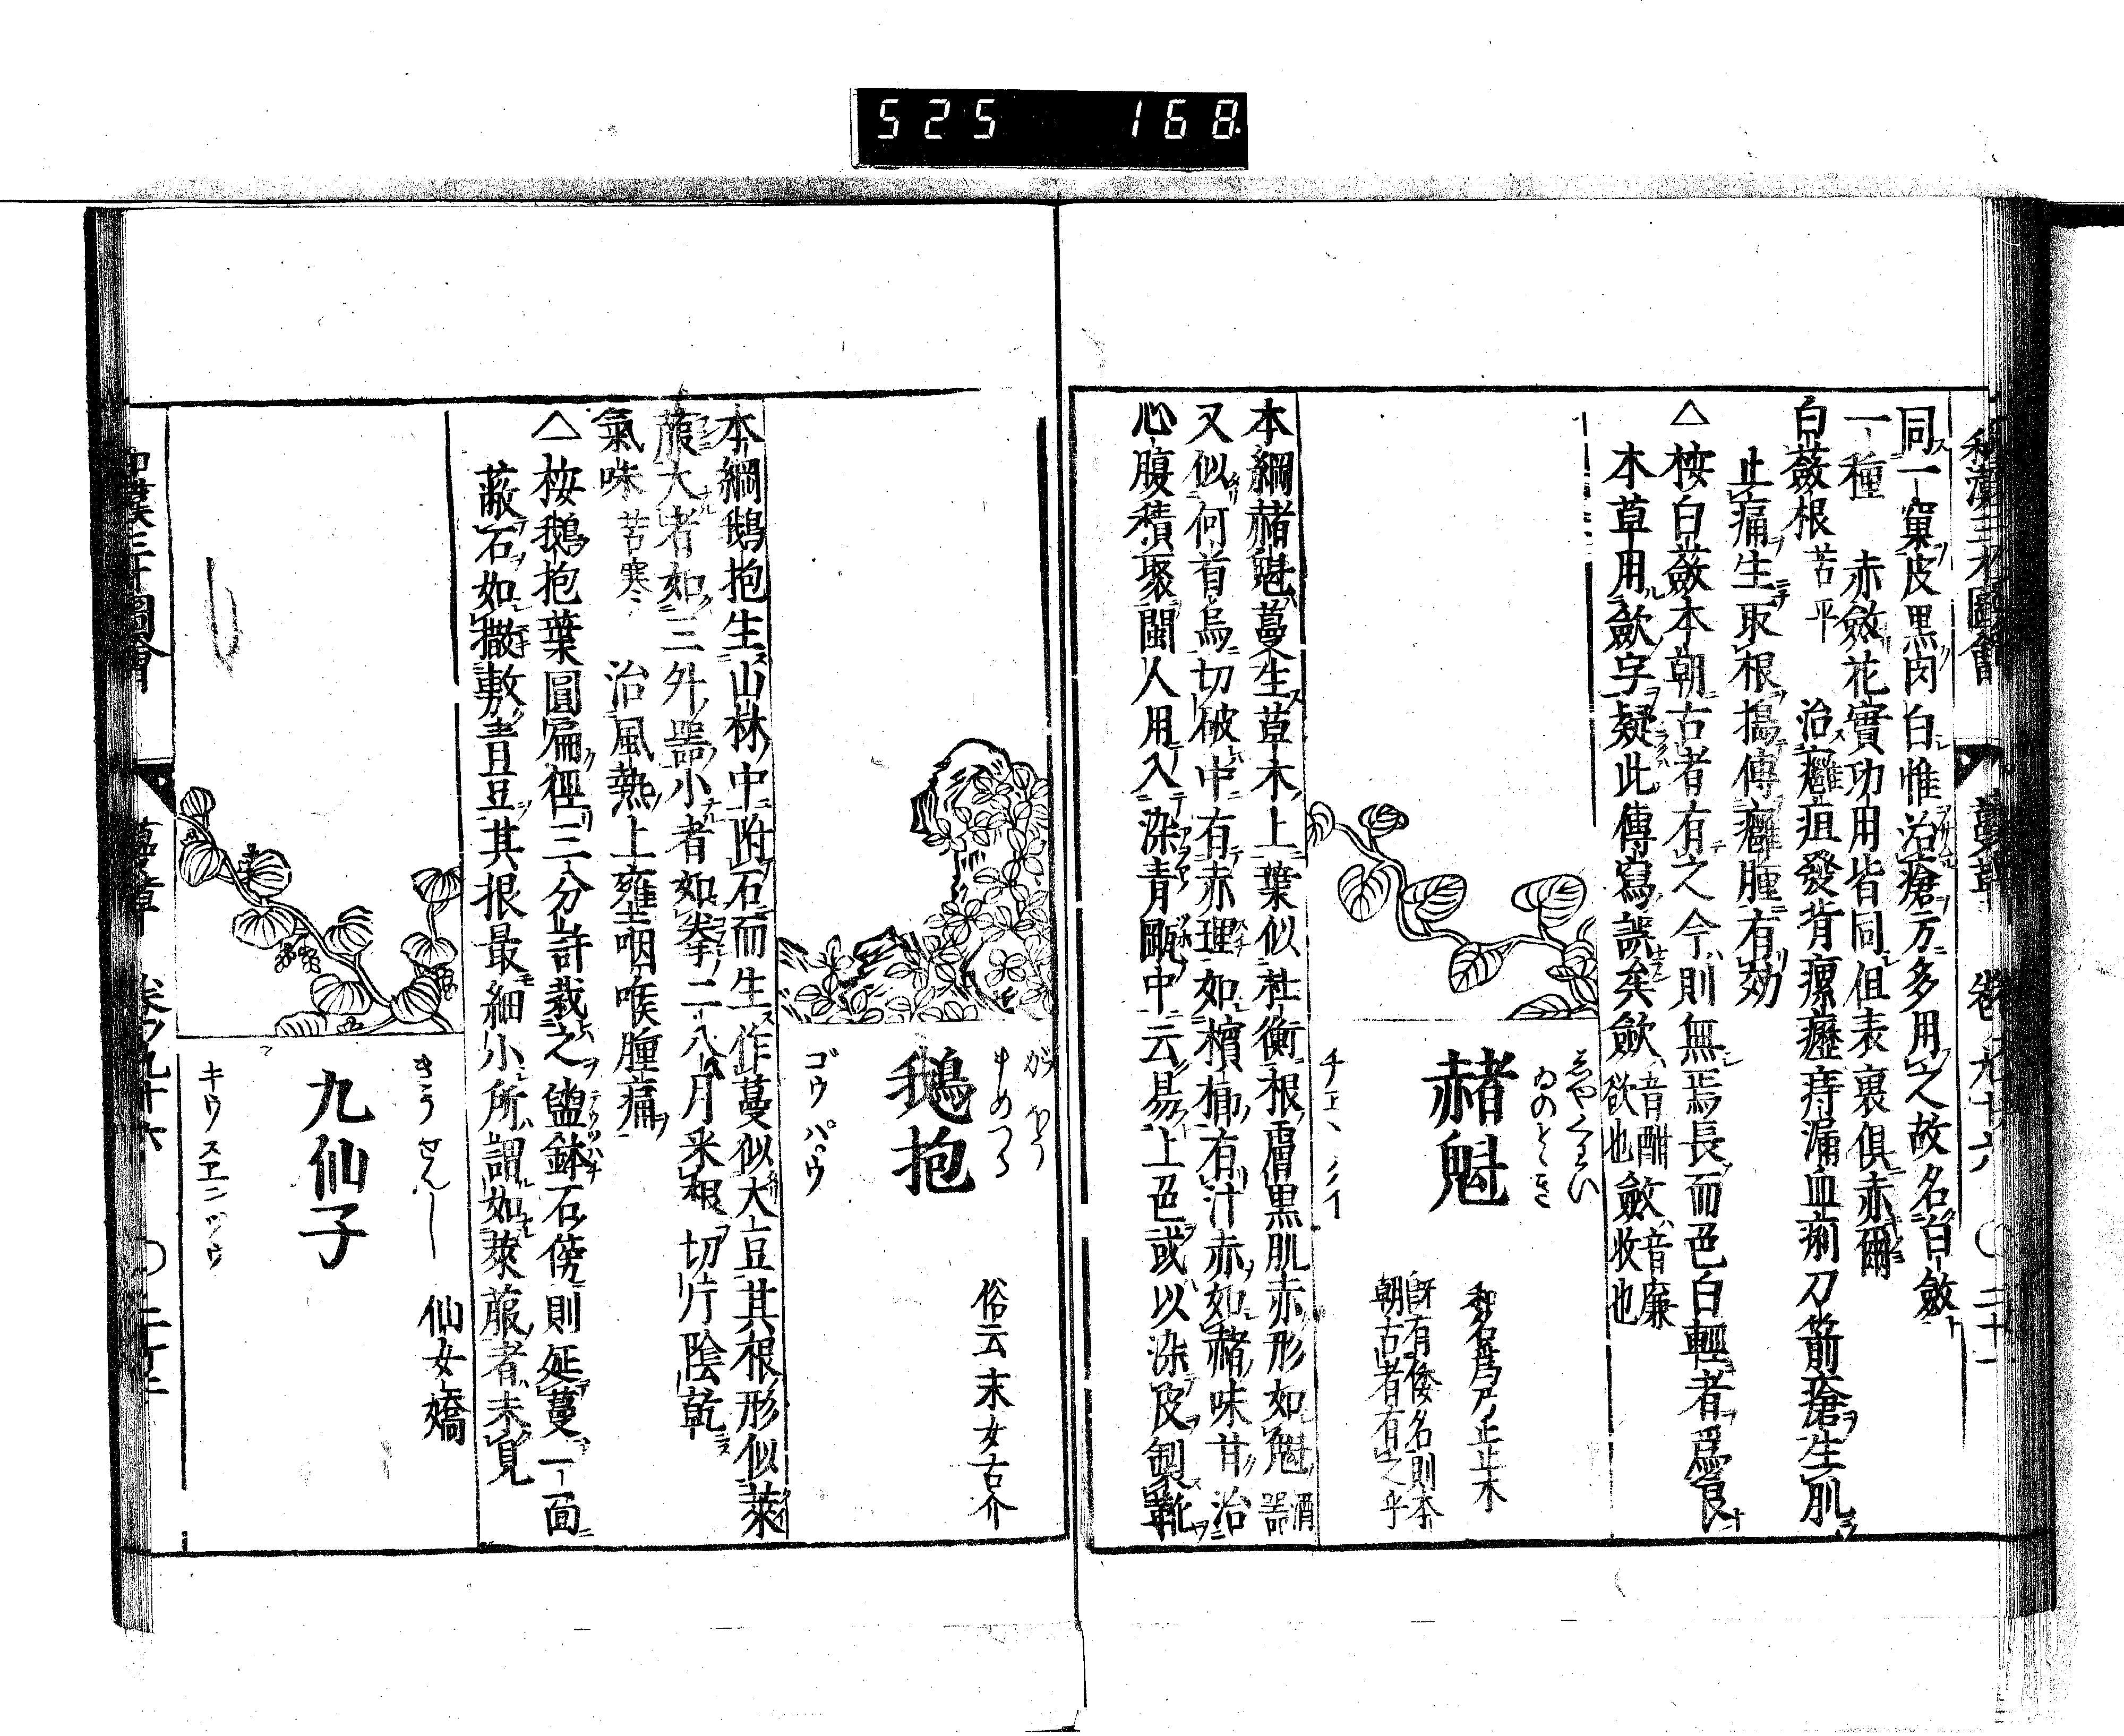 525 168
和漢三才圖會 蔓草 卷ノ九十六 〇二十一
同一窠皮黒肉白惟治瘡方多用之故名白斂
一種 赤斂花實功用皆同但表裏俱赤爾
白蘞根 苦平 治癰疽發背瘰癧痔漏血痢刀箭瘡生肌
止痛生取根搗傅癰腫有効
△桉白蘞本朝古者有之今則無焉長而色白輕者爲良
本草用歛字疑此傳寫誤矣歛音酣欲也斂音廉收也
赭魁
ゐのとき
和名爲乃止止木
既有倭名則本
朝古者有之乎
本綱赭魁蔓生草木上葉似杜衡根膚黒肌赤形如魁酒器
又似何首烏切破中有赤理如檳榔有汁赤如赭味甘治
心腹積聚閩人用入染青甌中云易上色或以染皮製靴
鵝抱
がはう
まめつる
ゴウパ゜ウ
俗云末女古介
本綱鵝抱生山林中附石而生作蔓似大豆其根形似萊
菔大者如三升器小者如拳二八月采根切片陰乾
氣味 苦寒 治風熱上壅咽喉腫痛
△桉鵝抱葉圓扁徑三分許栽之盥鉢石傍則延蔓一面
蔽石如撒敷青豆其根最細小所謂如萊菔者未見
九仙子
きうせんし
キウスヱンツウ
仙女嬌
和漢三才圖會 蔓草 卷ノ九十六 〇二十二